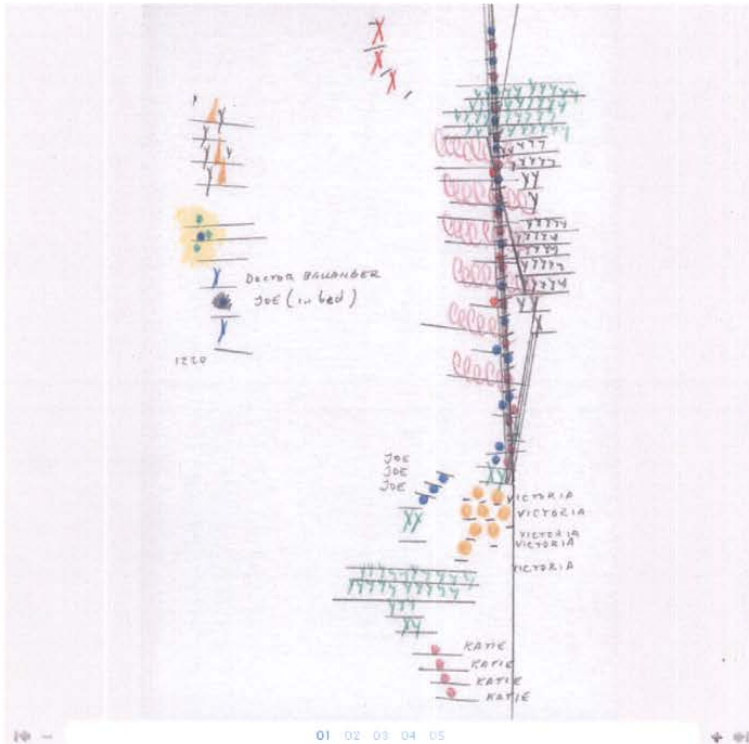 JOE (in bed)
1220
JOE
JOE
JOE
VICTORIA
VICTORIA
VICTORIA
VICTORIA
VICTORIA
KATIE
KATIE
KATIE
KATIE
01 02 03 04 05